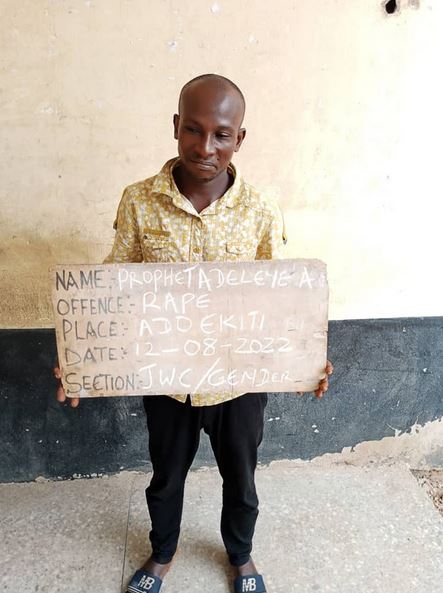 NAME: PROPHET ADELEYE A
OFFENCE:- RAPE
PLACE:- ADO EKITI
DATE:- 12-08-2022
SECTION: JWC/GENDER
MB
MB